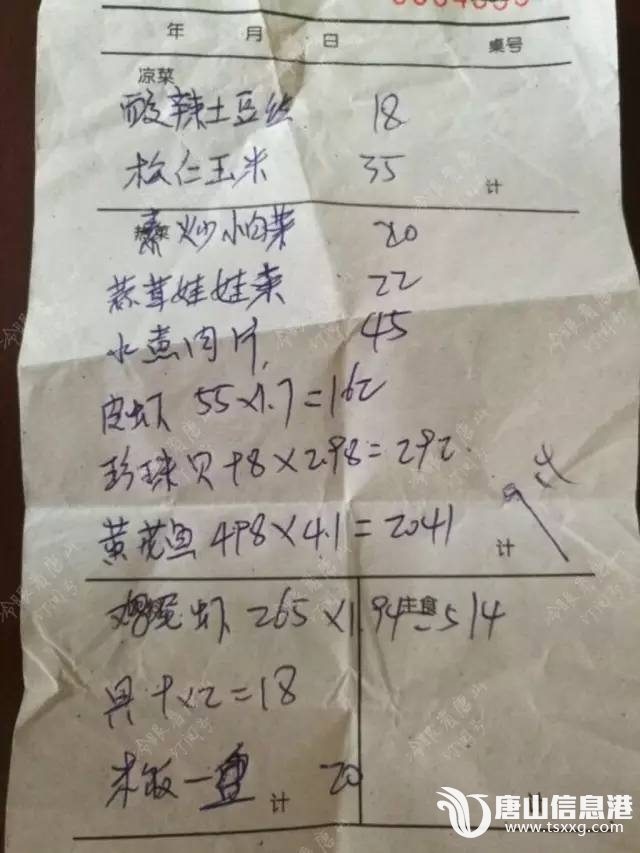 年 月 日 桌号
凉菜
酸辣土豆丝 18
松仁玉米 35
计
素炒小白菜 20
蒜茸娃娃菜 22
水煮肉片 45
皮虾 55×1.7=162
珍珠贝 +8×2.98=292
黄花鱼 498×4.1=2041
计
主食
虾 265×1.94=514
×2=18
米饭一 20
计 计
唐山信息港
www.tsxxg.com